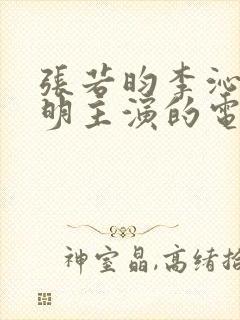 張若昀李沁
明主演的電
神室晶,高绪拾